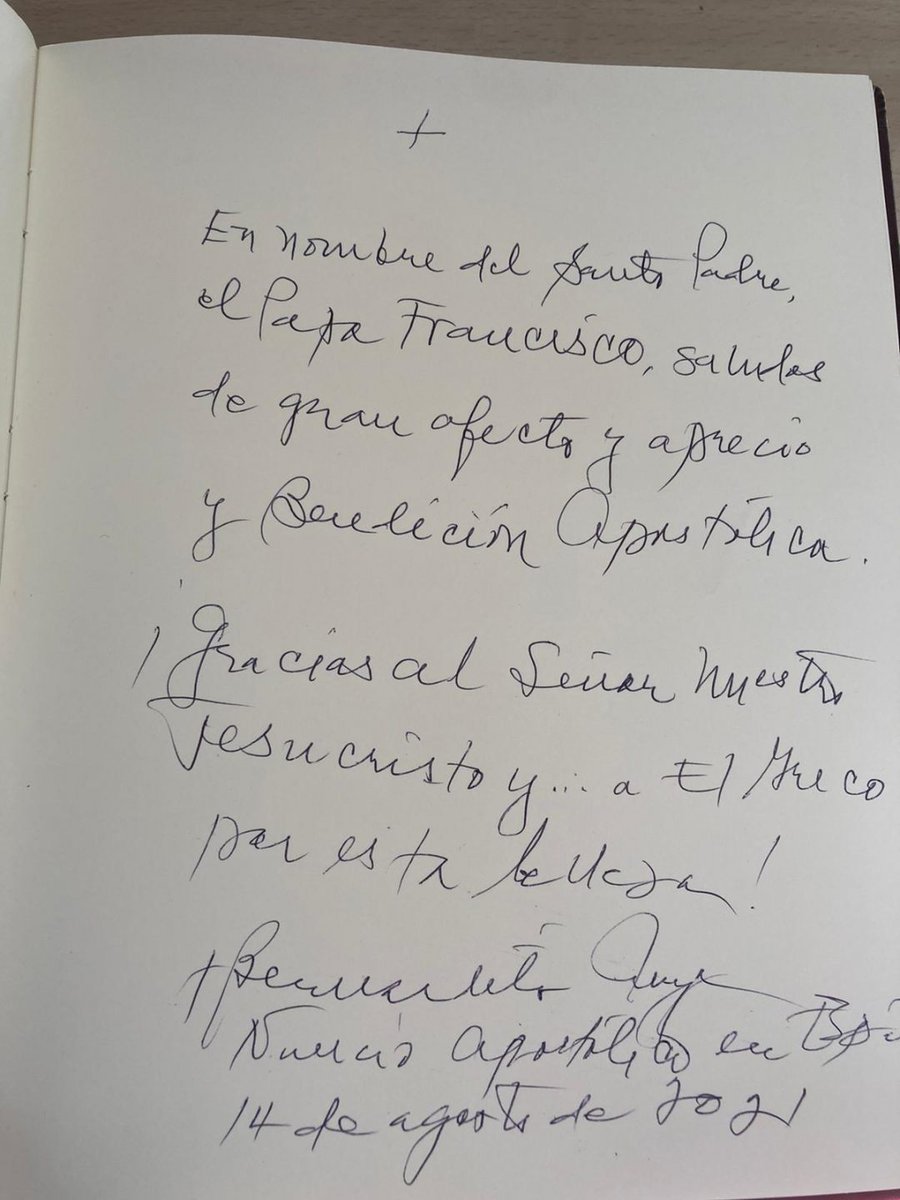 +
En nombre del Santo Padre,
el Papa Francisco, saludos
de gran afecto y aprecio
y Bendición Apostólica.
¡Gracias al Señor Nuestro
Jesucristo y... a El Greco
por esta belleza!
+ Bernardito Auza
Nuncio Apostólico en
14 de agosto de 2021